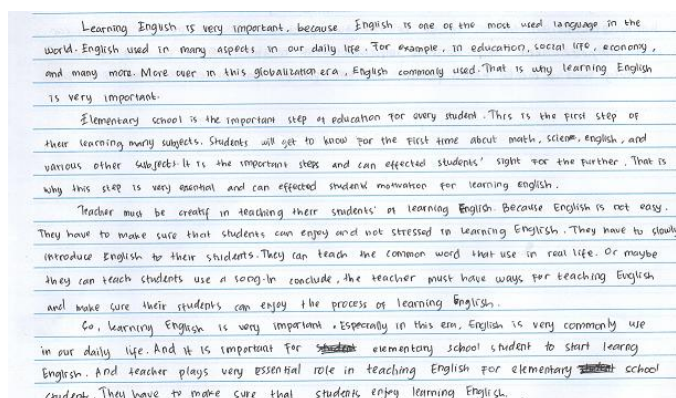 Learning Engush is very important, because English is one of the most used language in the
world. English used in many aspects in our daily life. For example, in education, social life, economy,
and many more. More over in this globalization era, English commonly used. That is why learning English
is very important.
Elementary school is the important step of education for every student. This is the first step of
their learning many subjects. Students will get to know for the first time about math, science, english, and
various other subjects. It is the important steps and can effected students' sight for the further. That is
why this step is very essential and can effected students motivation for learning english.
Teacher must be creatif in teaching their students' of learning English. Because English is not easy.
They have to make sure that students can enjoy and not stressed in learning English. They have to slowly
introduce English to their students. They can teach the common word that use in real life. Or maybe
they can teach students use a song. In conclude, the teacher must have ways for teaching English
and make sure their students can enjoy the process of learning English.
So, learning English is very important. Especially in this era, English is very commonly use
in our daily life. And it is important for elementary school student to start learng
English. And teacher plays very essential role in teaching English for elementary school
student. They have to make sure that students enjoy learning English.